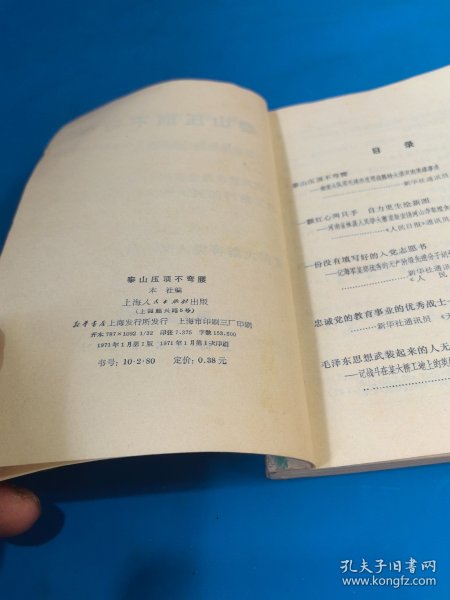 泰山压顶不弯腰
本社编
上海人民出版社出版
(上海绍兴路5号)
新华书店上海发行所发行 上海市印刷三厂印刷
开本 787×1092 1/32 印张 7.375 字数 159,500
1971年1月第1版 1971年1月第1次印刷
书号:10·2·80 定价:0.38元
目录
泰山压顶不弯腰
新华社通讯员
一颗红心两只手 自力更生绘新图
《人民日报》通讯员
一份没有填写好的入党志愿书
新华社通讯员
《人民
忠诚党的教育事业的优秀战士
新华社通讯员
毛泽东思想武装起来的人无
——记战斗在某大桥工地上的英
孔夫子旧书网
www.kongfz.com